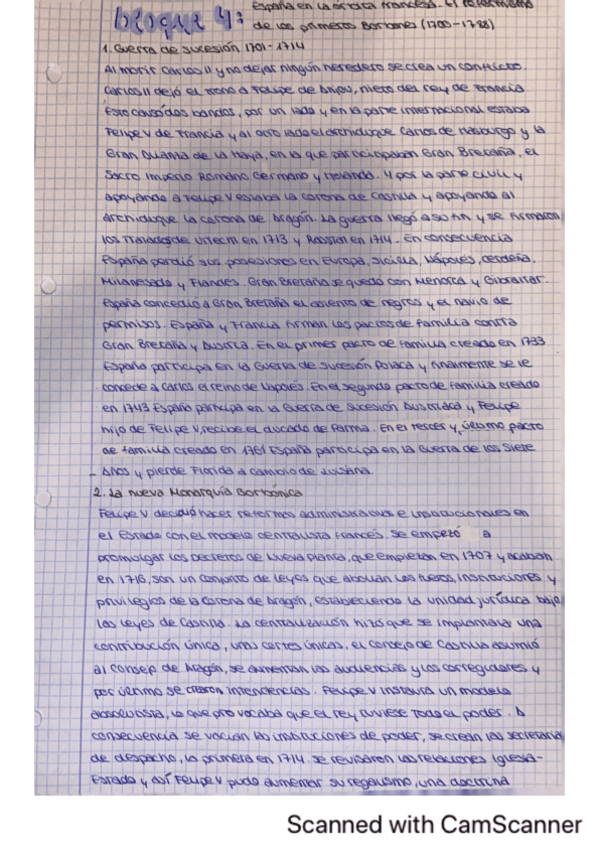 bloque 4: España en la órbita francesa. El reformismo
de los primeros Borbones (1700-1788)
1. Guerra de sucesión 1701-1714
Al morir Carlos II y no dejar ningún heredero se crea un conflicto.
Carlos II dejó el trono a Felipe de Anjou, nieto del rey de Francia
Esto causó dos bandos, por un lado y en la parte internacional estaba
Felipe V de Francia y al otro lado el archiduque Carlos de Habsburgo y la
Gran Alianza de la Haya, en la que participaban Gran Bretaña, el
Sacro Imperio Romano Germano y Holanda. Y por la parte civil y
apoyando a Felipe V estaba la corona de Castilla y apoyando al
Archiduque la corona de Aragón. La guerra llegó a su fin y se firmaron
los Tratados de Utrecht en 1713 y Rastatt en 1714. En consecuencia
España perdió sus posesiones en Europa, Sicilia, Nápoles, Cerdeña,
Milanesado y Flandes. Gran Bretaña se quedó con Menorca y Gibraltar.
España concedió a Gran Bretaña el asiento de negros y el navío de
permisos. España y Francia firman los pactos de familia contra
Gran Bretaña y Austria. En el primer pacto de familia creado en 1733
España participa en la Guerra de sucesión Polaca y finalmente se le
concede a Carlos el reino de Nápoles. En el segundo pacto de familia creado
en 1743 España participa en la Guerra de sucesión Austriaca y Felipe
hijo de Felipe V, recibe el ducado de Parma. En el tercer y último pacto
de familia creado en 1761 España participa en la Guerra de los Siete
Años y pierde Florida a cambio de Luisiana.
2. La nueva Monarquía Borbónica
Felipe V decidió hacer reformas administrativas e institucionales en
el Estado con el modelo centralista francés. Se empezó a
promulgar los Decretos de Nueva Planta, que empiezan en 1707 y acaban
en 1716, son un conjunto de leyes que abolían los fueros, instituciones y
privilegios de la corona de Aragón, estableciendo la unidad jurídica bajo
las leyes de Castilla. La centralización hizo que se implantara una
contribución única, unas cortes únicas, el consejo de Castilla asumió
al consejo de Aragón, se aumentan las audiencias y los corregidores y
por último se crearon intendencias. Felipe V instaura un modelo
absolutista, lo que provocaba que el rey tuviese todo el poder. A
consecuencia se vacían las instituciones de poder, se crean las secretaría
de despacho, la primera en 1714. Se revisaron las relaciones Iglesia-
Estado y así Felipe V pudo aumentar su regalismo, una doctrina
Scanned with CamScanner